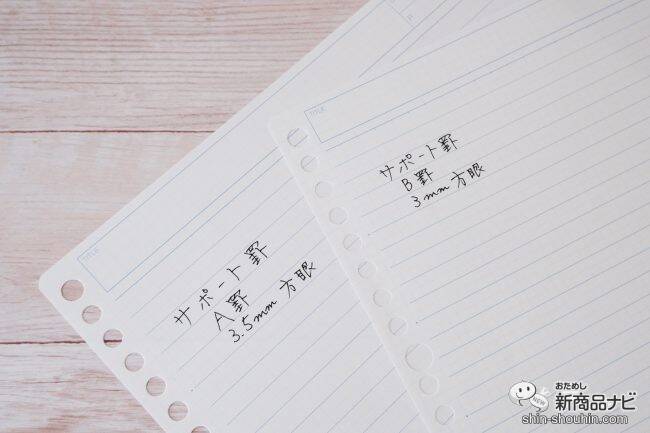 TITLE
サポート罫
A罫
3.5mm 方眼
TITLE
サポート罫
B罫
3mm 方眼
おためし
新商品ナビ
NEW
shin-shouhin.com